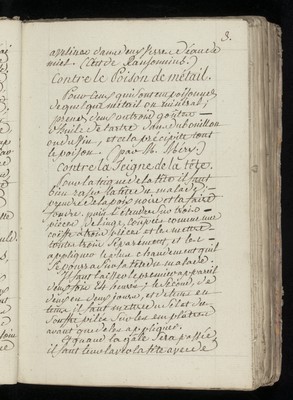 3.
avelines dans deux verres d'eau de
miel. (C'est de Ransonnius.)
Contre le Poison de métail.
Pour ceux qui sont empoisonnés
de quelque métail ou minéral;
prenez deux ou trois gouttes
d'huile de tartre dans du bouillon
ou du vin, et cela précipite tout
le poison. (par M. Méry.)
Contre la Teigne de la tête.
Pour la teigne de la tête il faut
bien raser la tête du malade;
prendre de la poix noire et la faire
fondre, puis l'étendre sur trois
pièces de linge, coupées comme une
coëffe à trois pièces et les mettre
toutes trois séparément, et les
appliquer le plus chaudement qu'il
se pourra sur la tête du malade.
Il faut laisser le premier appareil
deux fois 24 heures; le second, de
deux en deux jours, et de tems en
tems il faut mettre de la fleur de
souffre pilée sur les emplâtres
avant que de les appliquer.
Quand la gale sera passée
il faut leur laver la tête avec de